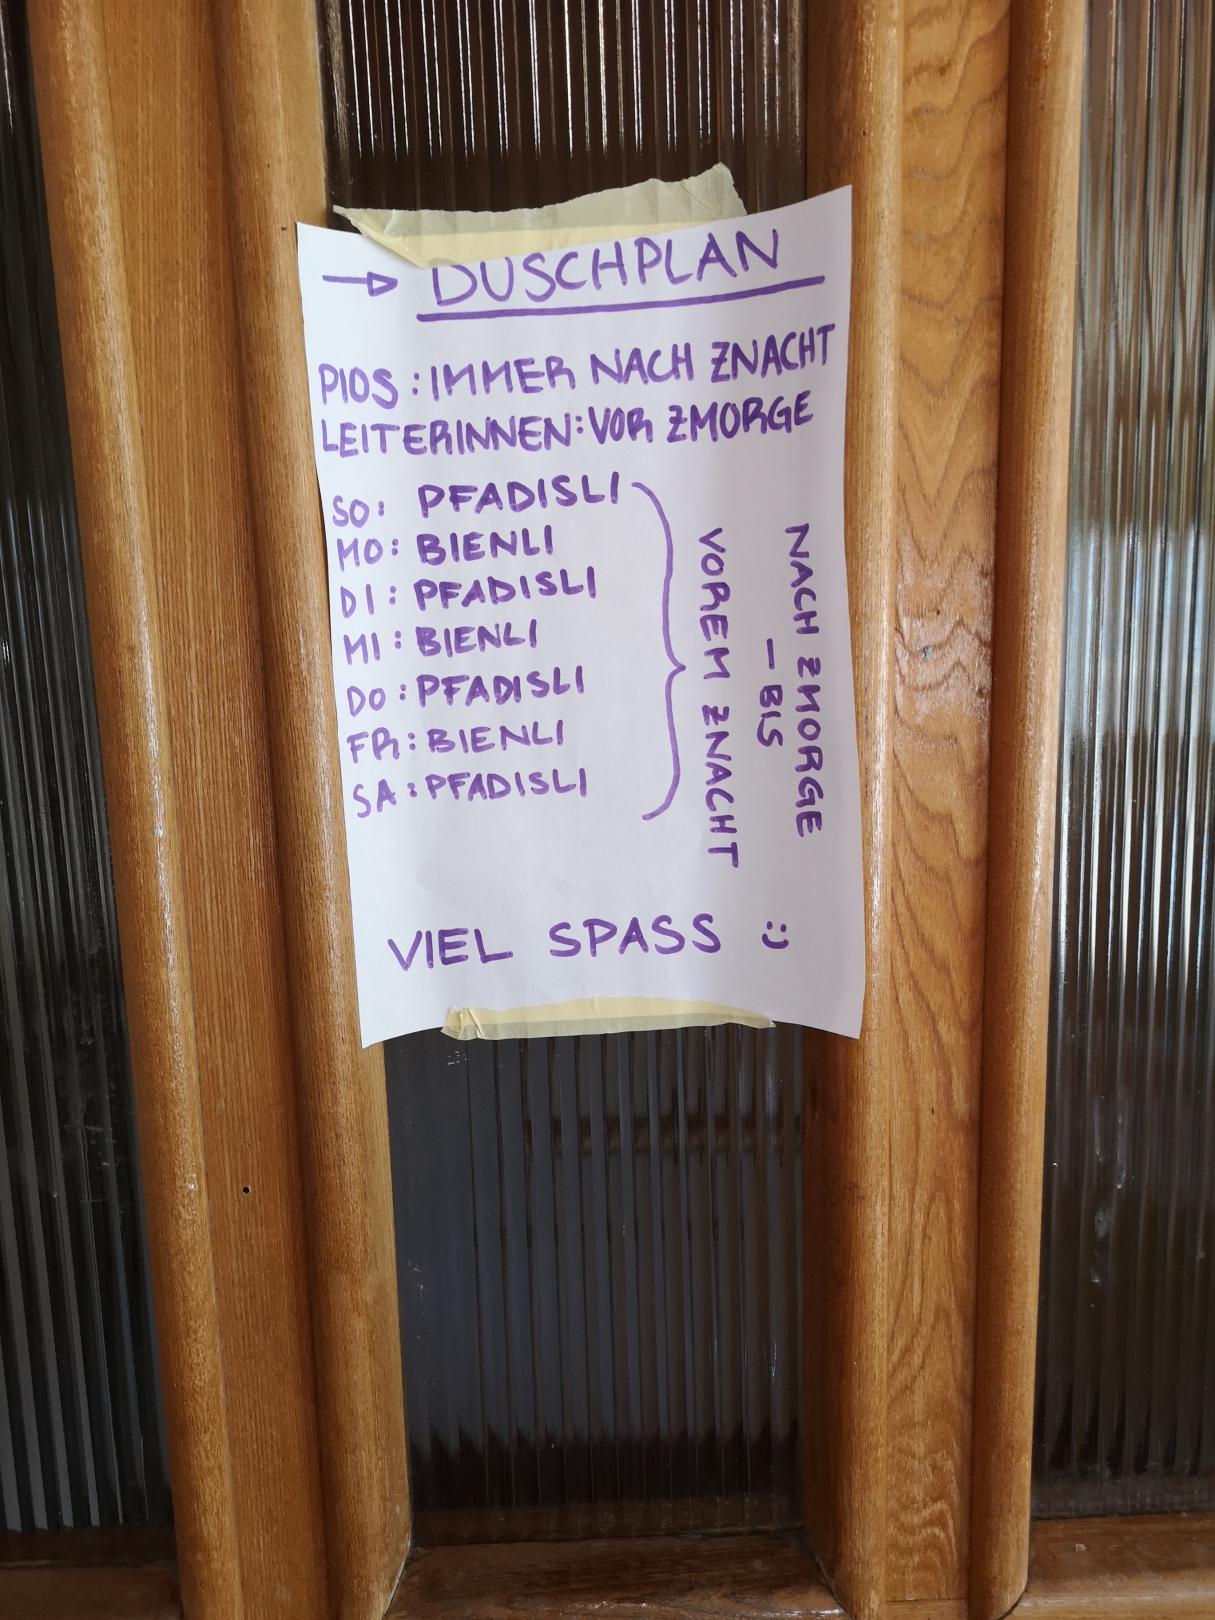 → DUSCHPLAN
PIOS: IMMER NACH ZNACHT
LEITERINNEN: VOR ZMORGE
SO: PFADISLI
MO: BIENLI
DI: PFADISLI
MI: BIENLI
DO: PFADISLI
FR: BIENLI
SA: PFADISLI
NACH ZMORGE
– BIS
VOREM ZNACHT
VIEL SPASS :)